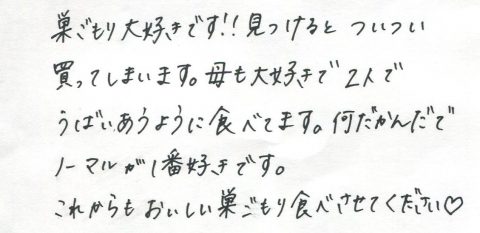 巣ごもり大好きです!!見つけると ついつい
買ってしまいます。母も大好きで 2人で
うばいあうように食べてます。何だかんだで
ノーマルが1番好きです。
これからも おいしい巣ごもり食べさせてください♡